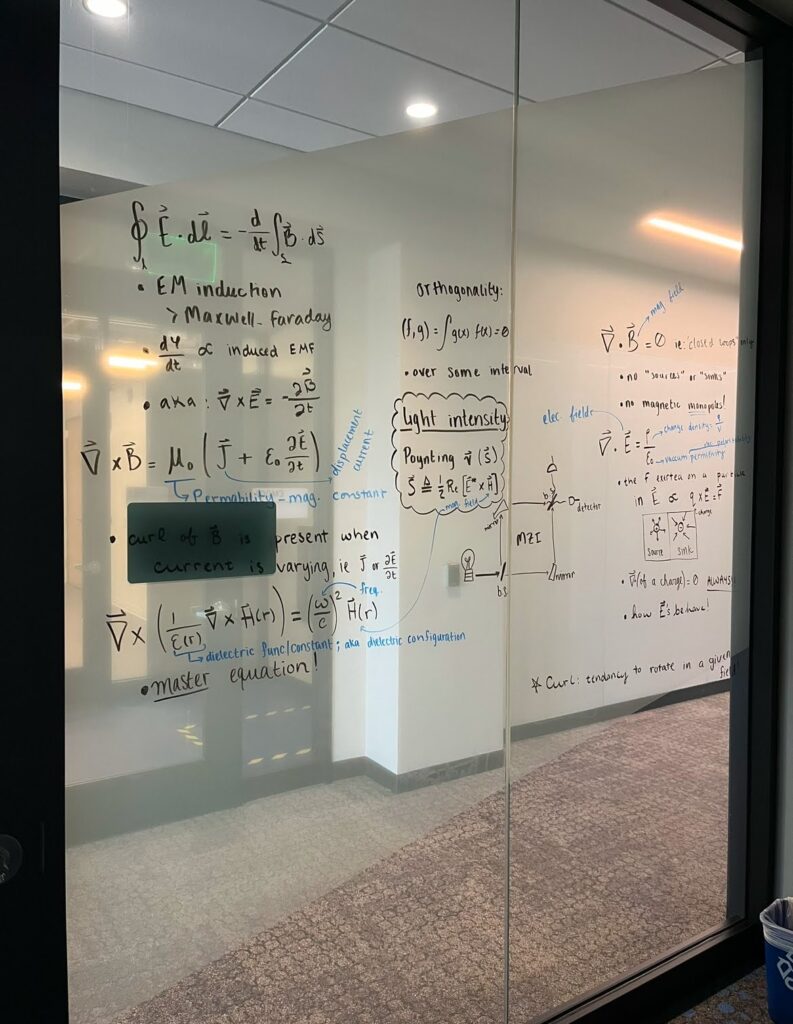 ∮ E⃗ · dl⃗ = - d/dt ∫ B⃗ · dS⃗
• EM induction
> Maxwell-Faraday
• dΨ/dt ∝ induced EMF
• aka: ∇⃗ × E⃗ = - ∂B⃗/∂t
∇⃗ × B⃗ = μ₀ ( J⃗ + ε₀ ∂E⃗/∂t )
displacement current
Permability - mag. constant
• curl of B⃗ is present when
current is varying, ie J⃗ or ∂E⃗/∂t
∇⃗ × ( 1/ε(r) ∇⃗ × H⃗(r) ) = ( ω/c )² H⃗(r)
freq.
dielectric func/constant; aka dielectric configuration
• master equation!
Orthogonality:
(f,g) = ∫ g(x) f(x) = 0
• over some interval
Light intensity
Poynting v⃗ (S⃗)
S⃗ ≜ 1/2 Re [E⃗* × H⃗]
mag. field
detector
b.s
mirror
MZI
b.s
mirror
mag. field
∇⃗ · B⃗ = 0 ie: "closed loops" only
• no "sources" or "sinks"
• no magnetic monopoles!
elec. fields
∇⃗ · E⃗ = ρ/ε₀
charge density:
vacuum permittivity
• the F exerted on a particle
in E⃗ ∝ q × E⃗ = F⃗
charge
source sink
(of a charge) = 0 ALWAYS
• how E⃗'s behave!
* Curl: tendency to rotate in a given
field!